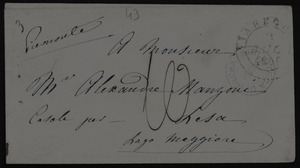 43
Piemonte
A Monsieur
Mr Alexandre Mangoni
10
Casale per Lesa
Lago Maggiore